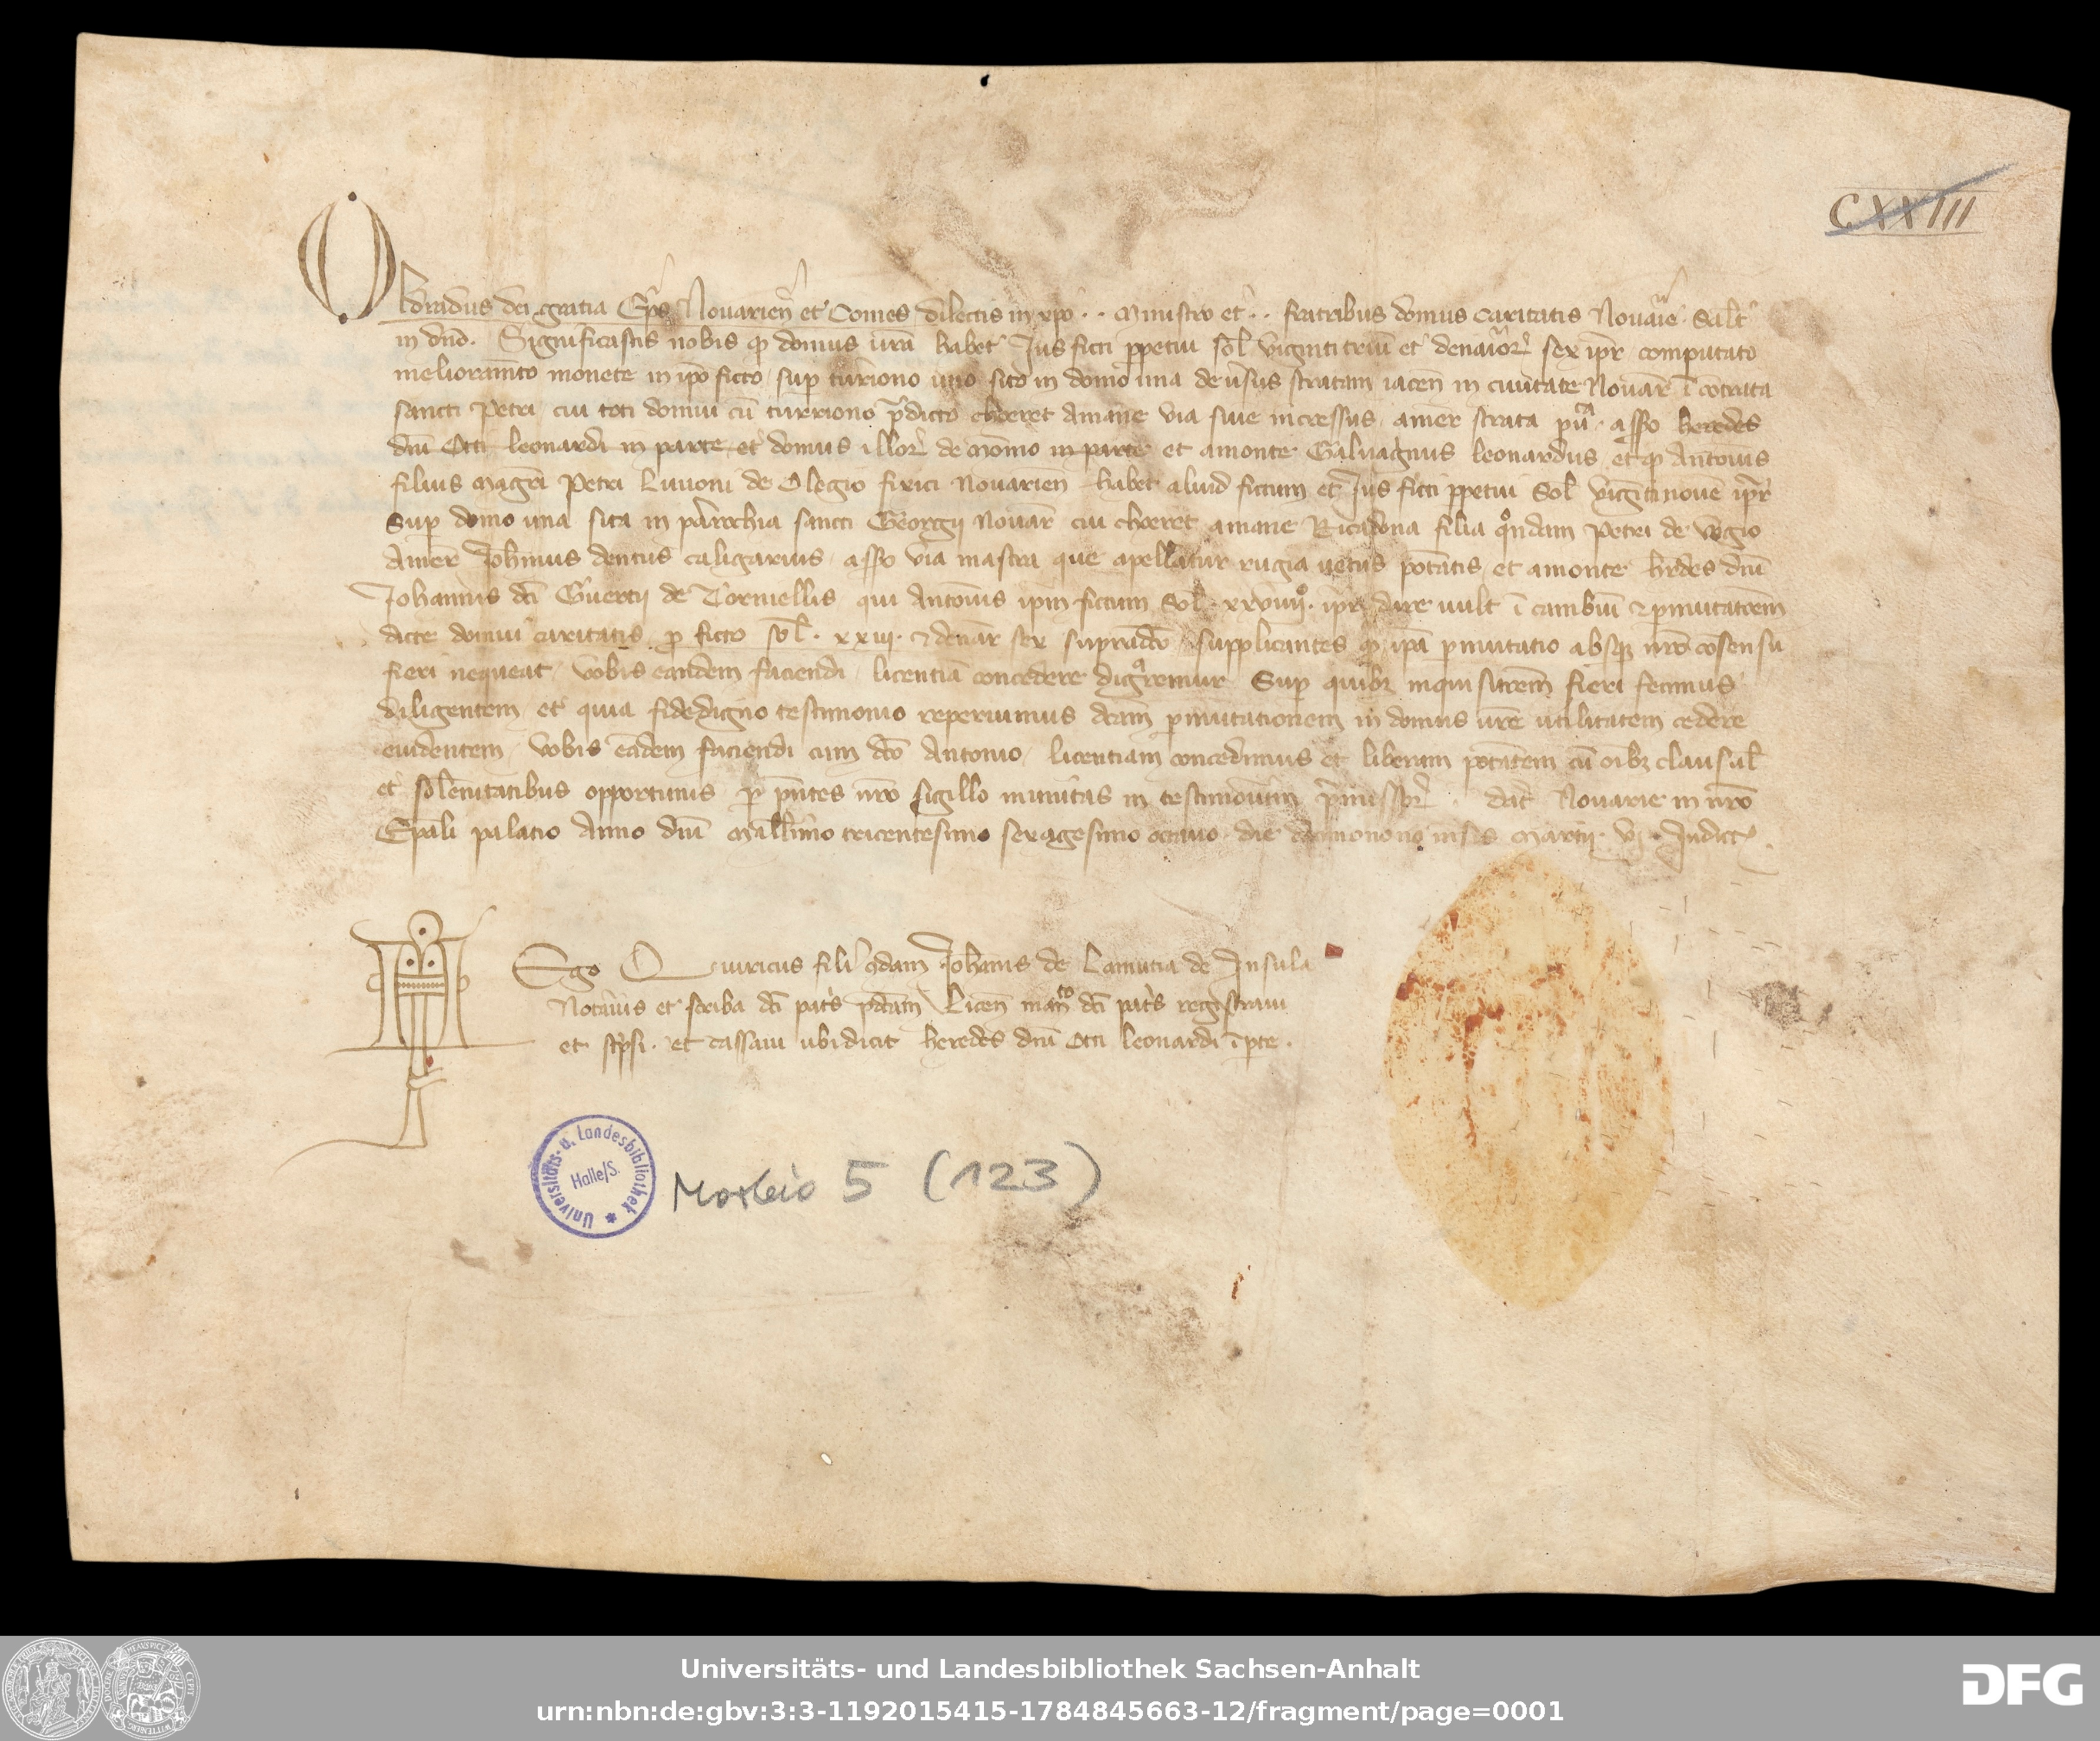 CXXIII
Oldradus dei gratia Ep̄s Nouarieñ et Comes dilectis in xp̄o . . Ministro et . . fratribus domus caritatis Nouarie Salt̄
in dn̄o. Significastis nobis qd domus ur̄a habet Jus ficti ꝑpetui sol̄ viginti triū et denarior̄ sex ip̄r computato
melioram̄to monete in ip̄o ficto sup turriono uno sito in domo una deu̓sus stratam iaceñ in ciuitate Nouar̄ ī cōtrata
sancti Petri cui toti domui cū turriono p̄dicto choeret Amane via siue incressus amer̄ strata pu͡ᵃ asso heredes
dn̄i Otti leonardi in parte et domus illor̄ de Momo in parte et amonte Galuagnus leonardus et qd Antonius
filius magr̄i Petri Liuoni de Olegio fixici Nouarieñ habet aliud fictum et Jus ficti ꝑpetui Sol̄ viginti nouē ip̄r
Sup domo una sita in parrochia sancti Georgij Nouar̄ cui choeret amane Ricadona filia qͦndam Petri de
Amer̄ Johīnus dentus caligarius asso via mastra que apellatur rugia uetus potātis et amonte hr̄des dn̄i
Johannis dc̄i Guercij de Torniellis qui Antonius ip̄m fictum Sol̄ . xxviiijͦ . ip̄r dare uult ī cambiū ⁊ ꝑmutatōem
dicte domui caritatis ꝑ ficto sol̄ . xxiij . ⁊ denar̄ sex supradc̄o supplicantes qd ip̄a ꝑmutatio absqꝫ nr̄o cōsensu
fieri nequeat vobis eandem faciendi licentiā concedere dignaremur Sup quibꝫ inquisitōem fieri fecimus
diligentem et quia fidedigno testimonio reperiuimus dc̄am ꝑmutationem in domus ur̄e utilitatem cedere
euidentem vobis eādem faciendi cum dc̄o Antonio licentiam concedimus et liberam potātem cū oībꝫ clausul̄
et sol̄emnitatibus opportunis ꝑ pn̄tes nr̄o sigillo munitas in testimoniūm p̄missor̄ . Dat̄ Nouarie in nr̄o
Ep̄ali palatio Anno dn̄i Mill̄imo tricentesimo sexagesimo octauo die decimonono mēsis Martij . vj . Indict̄
Ego Quiricus fili̓ qdam Johanis de Lamutia de Insula
Notarius et scriba dc̄i pat̓s p̄dc̄am Licen̄ man̄ᵗᵒ dc̄i pat̓s registraui
et sc̓psi . et cassaui ubi dicit heredes dn̄i Otti leonardi ī pte .
Universitäts- u. Landesbibliothek
Halle/S.
Morbio 5 (123)
Universitäts- und Landesbibliothek Sachsen-Anhalt
urn:nbn:de:gbv:3:3-1192015415-1784845663-12/fragment/page=0001
DFG